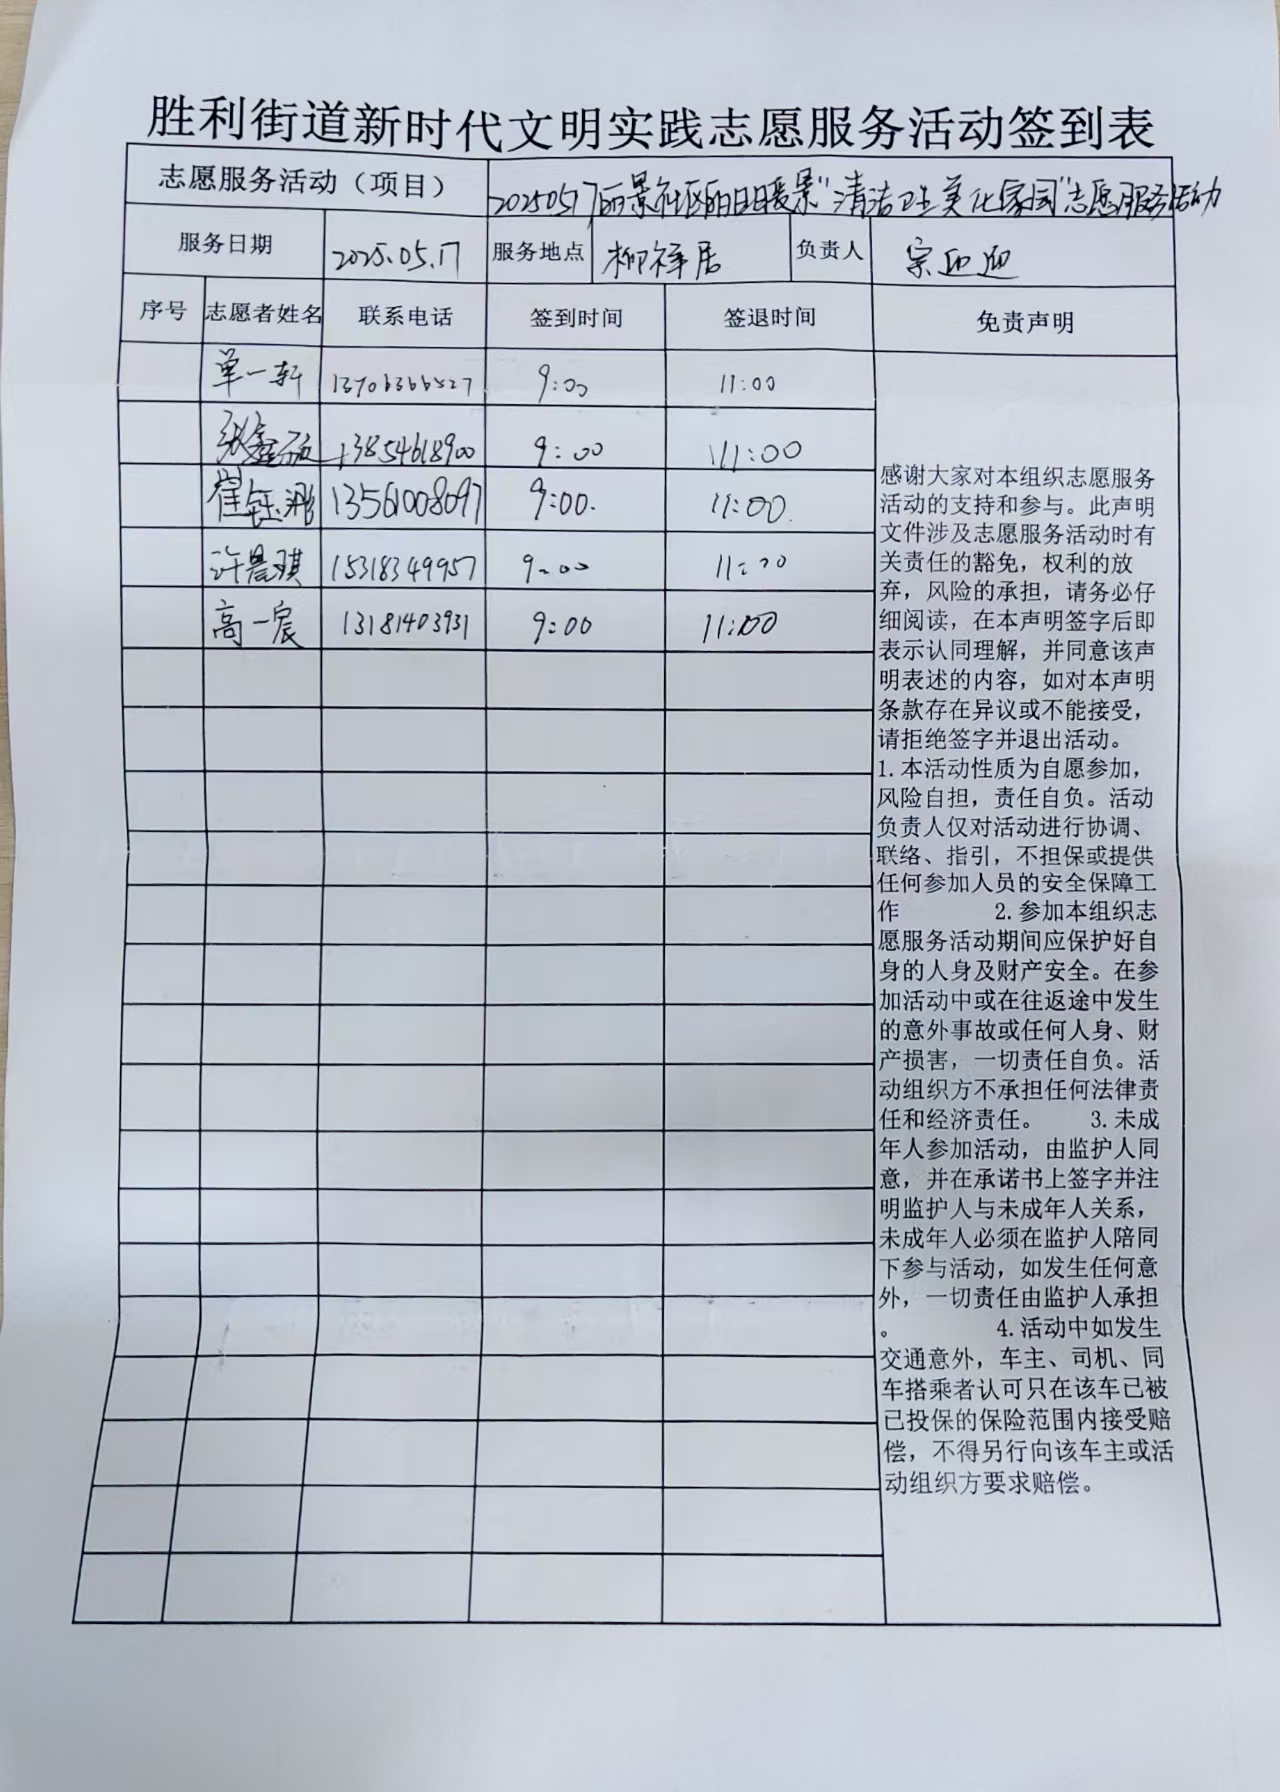 胜利街道新时代文明实践志愿服务活动签到表
志愿服务活动（项目） 20250517丽景社区丽日暖景“清洁卫生美化家园”志愿服务活动
服务日期 2025.05.17 服务地点 柳祥居 负责人 宗迎迎
序号 志愿者姓名 联系电话 签到时间 签退时间 免责声明
单一轩 9:00 11:00
张鑫硕 13854618900 9:00 11:00
崔钰 13561008097 9:00. 11:00.
许晨琪 15318349957 9:00 11:00
高一宸 13181403931 9:00 11:00
感谢大家对本组织志愿服务
活动的支持和参与。此声明
文件涉及志愿服务活动时有
关责任的豁免，权利的放
弃，风险的承担，请务必仔
细阅读，在本声明签字后即
表示认同理解，并同意该声
明表述的内容，如对本声明
条款存在异议或不能接受，
请拒绝签字并退出活动。
1.本活动性质为自愿参加，
风险自担，责任自负。活动
负责人仅对活动进行协调、
联络、指引，不担保或提供
任何参加人员的安全保障工
作 2.参加本组织志
愿服务活动期间应保护好自
身的人身及财产安全。在参
加活动中或在往返途中发生
的意外事故或任何人身、财
产损害，一切责任自负。活
动组织方不承担任何法律责
任和经济责任。 3.未成
年人参加活动，由监护人同
意，并在承诺书上签字并注
明监护人与未成年人关系，
未成年人必须在监护人陪同
下参与活动，如发生任何意
外，一切责任由监护人承担
。 4.活动中如发生
交通意外，车主、司机、同
车搭乘者认可只在该车已被
已投保的保险范围内接受赔
偿，不得另行向该车主或活
动组织方要求赔偿。